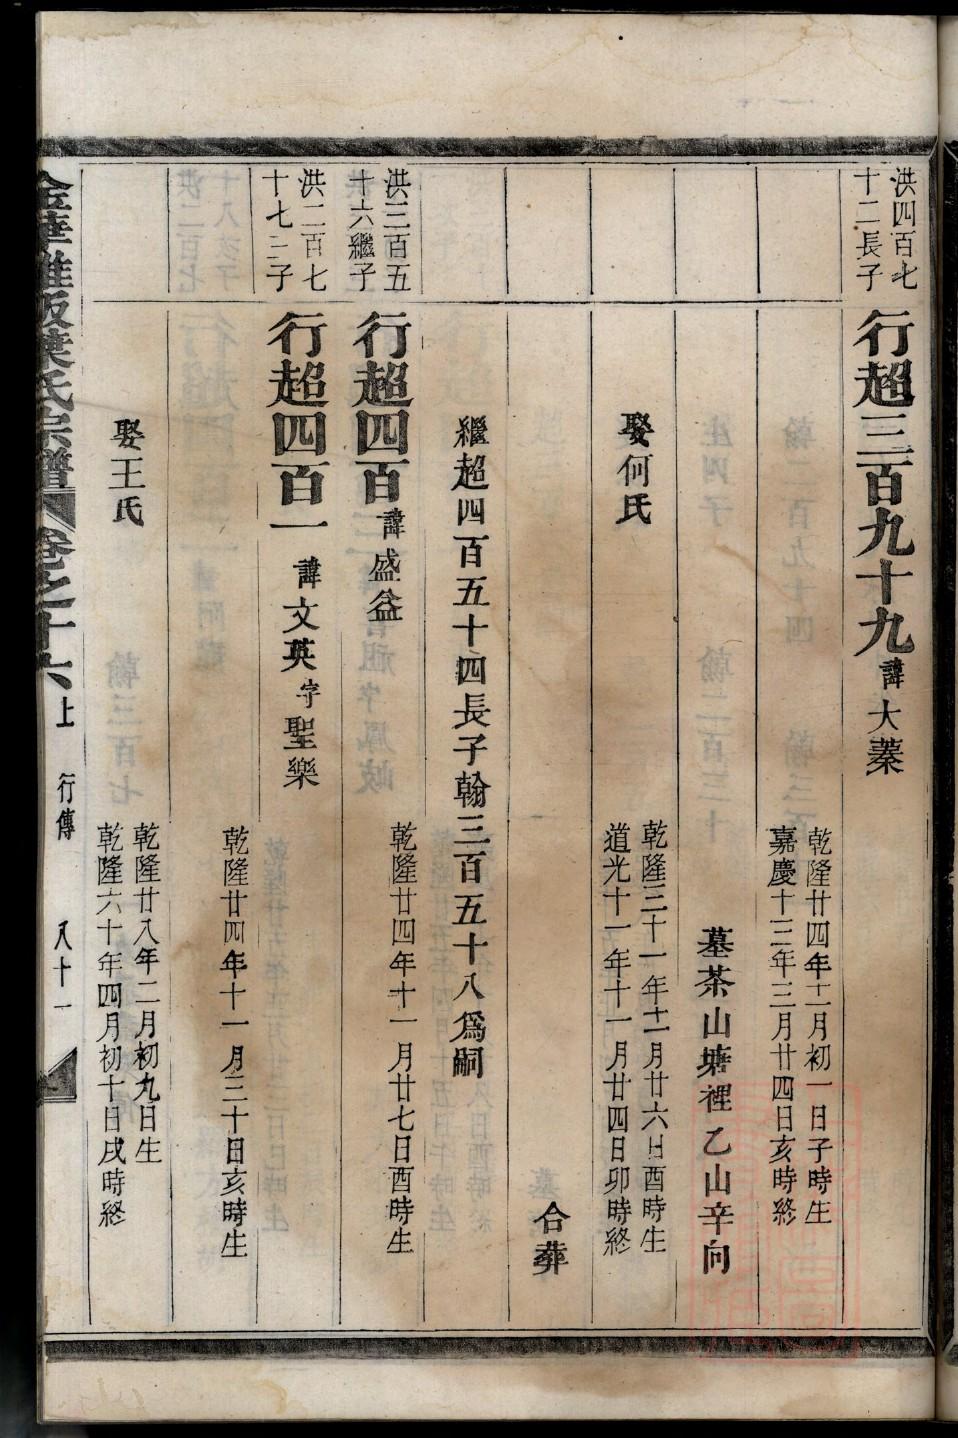 洪四百七
十二長子
行超三百九十九諱大蓁
乾隆廿四年十二月初一日子時生
嘉慶十三年三月廿四日亥時終
墓茶山塘裡乙山辛向
娶何氏
乾隆三十一年十二月廿六日酉時生
道光十一年十一月廿四日卯時終
合葬
繼超四百五十四長子翰三百五十八爲嗣
洪三百五
十六繼子
行超四百諱盛益
乾隆廿四年十一月廿七日酉時生
洪二百七
十七三子
行超四百一諱文英字聖樂
乾隆廿四年十一月三十日亥時生
娶王氏
乾隆廿八年二月初九日生
乾隆六十年四月初十日戌時終
金華雅畈葉氏宗譜 卷之十六上 行傳 八十一